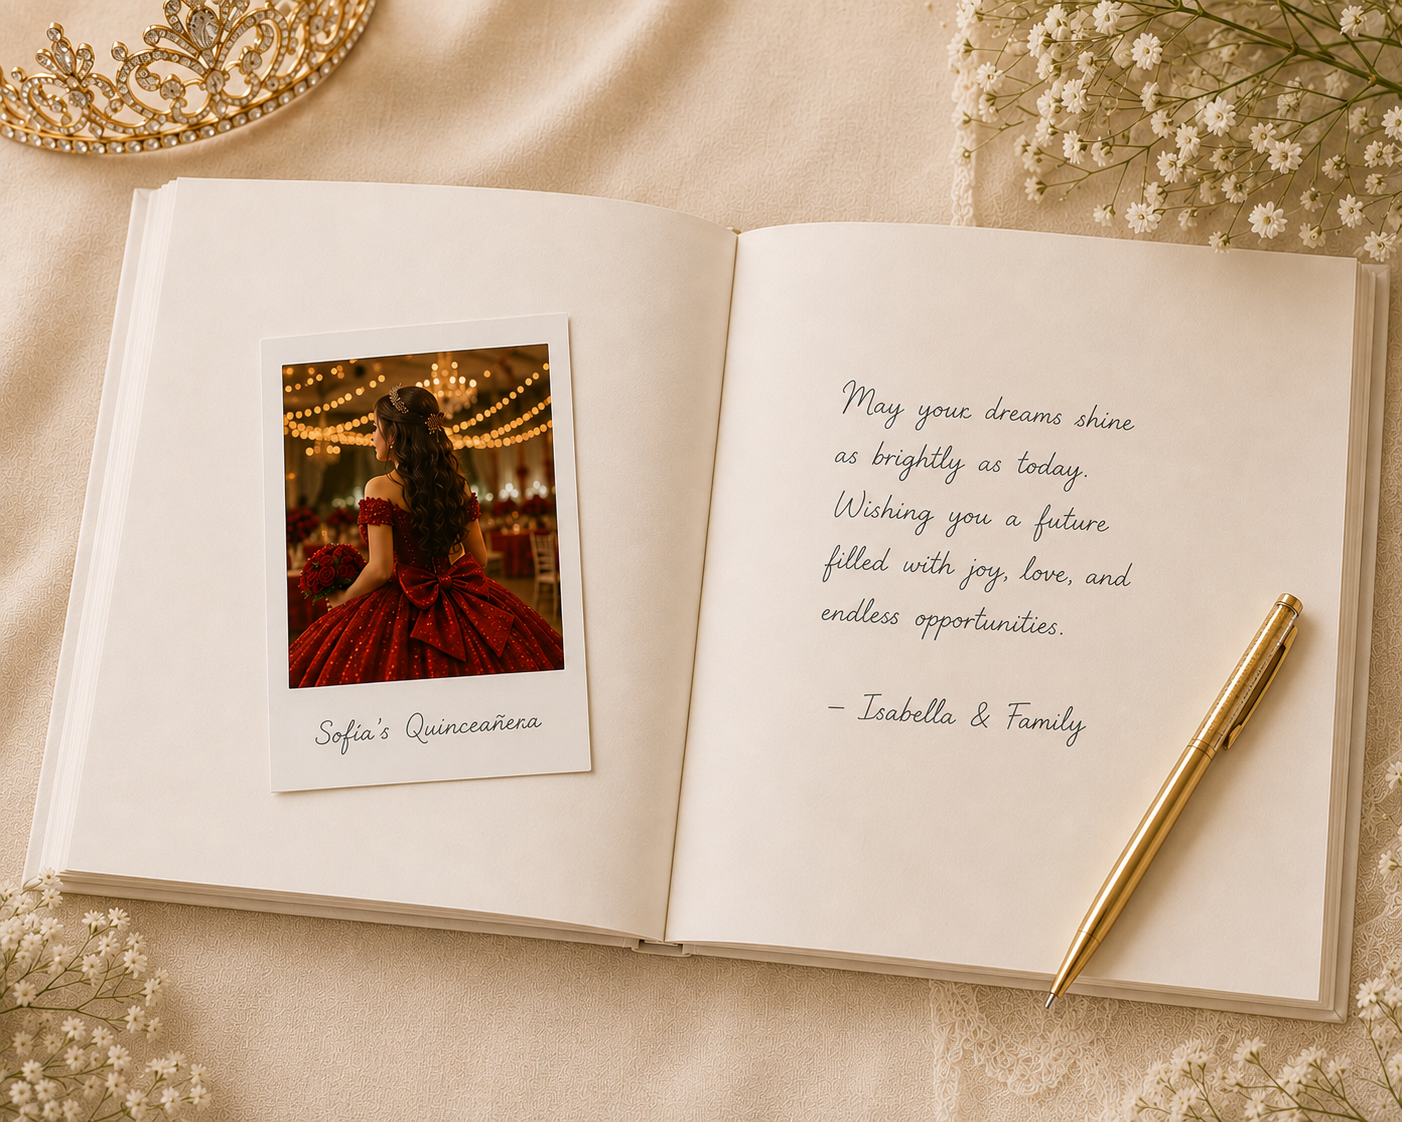 Sofía's Quinceañera
May your dreams shine
as brightly as today.
Wishing you a future
filled with joy, love, and
endless opportunities.
– Isabella & Family